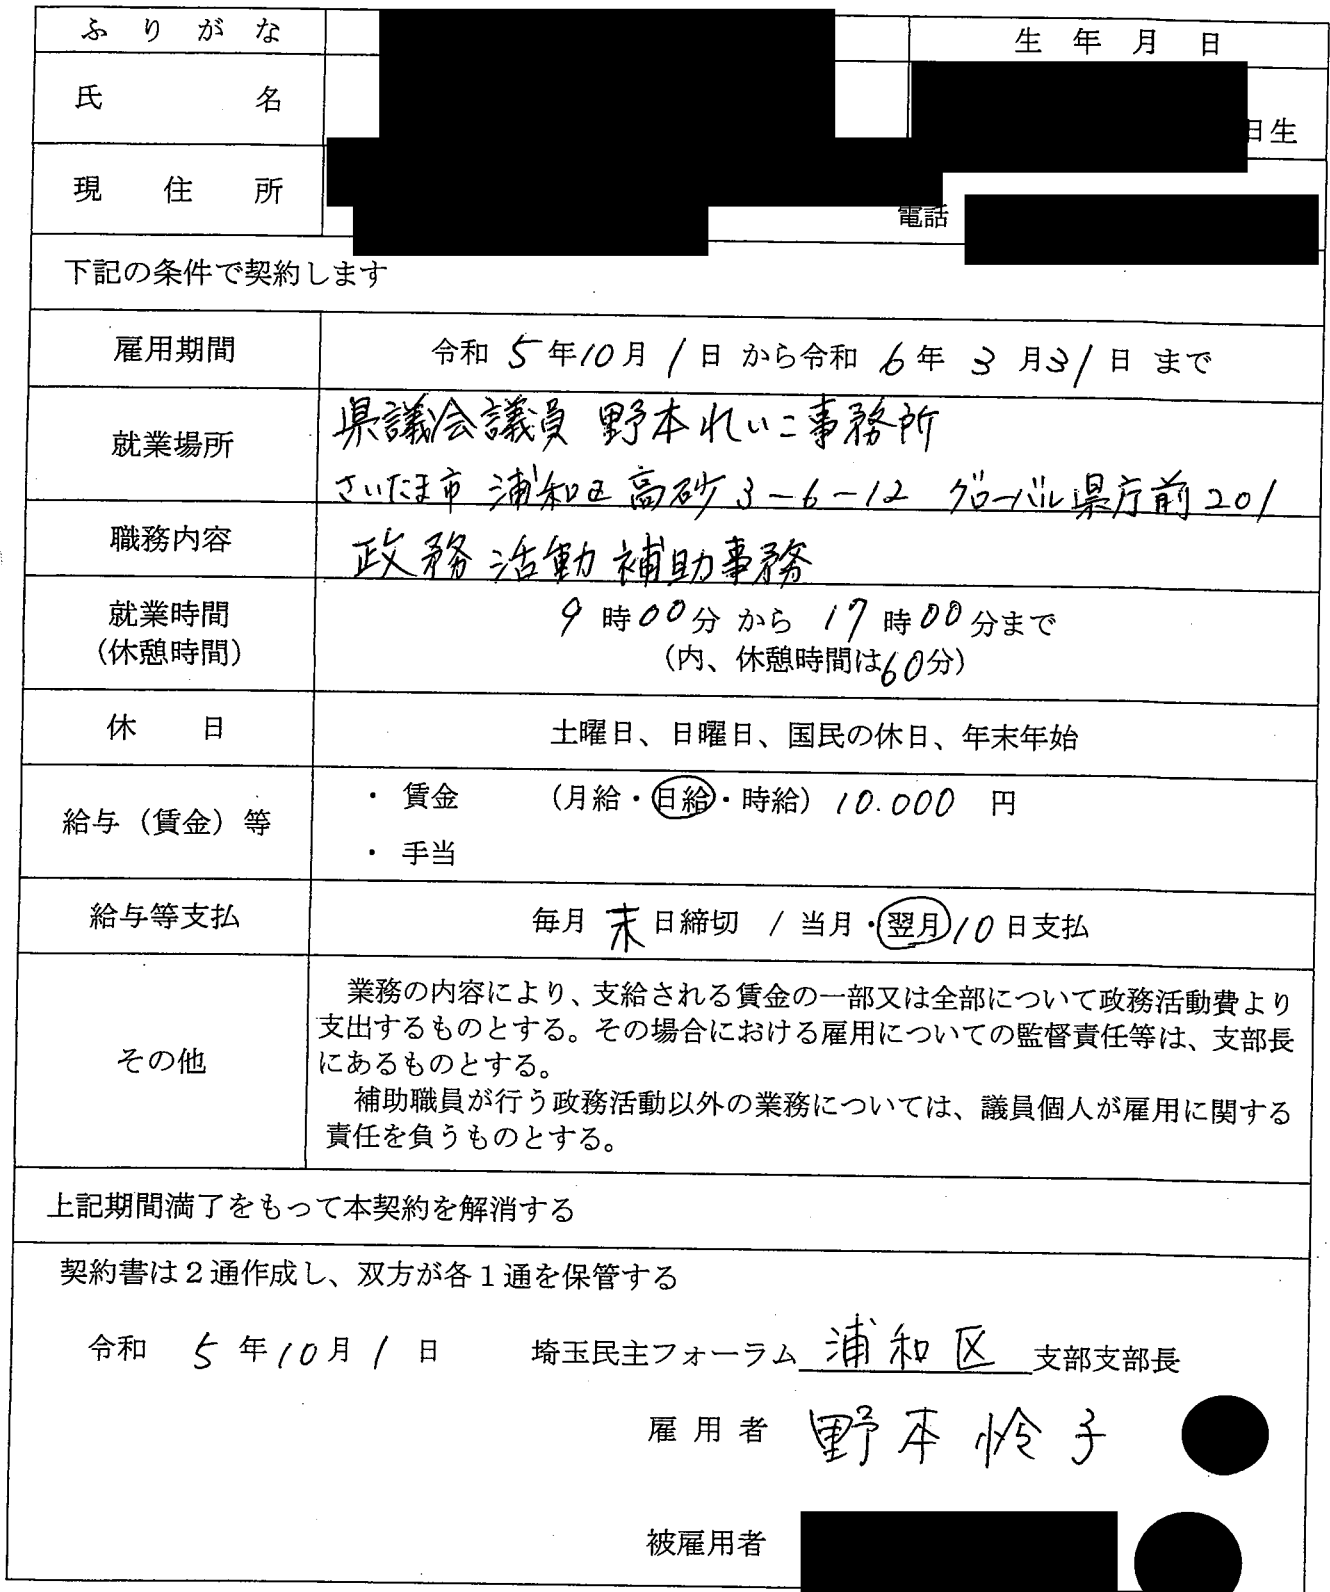 ふりがな
生年月日
氏名
日生
現住所
電話
下記の条件で契約します
雇用期間
令和 5年10月1日 から令和 6年 3月31日 まで
就業場所
県議会議員 野本れいこ事務所
さいたま市 浦和区 高砂3-6-12 グローバル県庁前201
職務内容
政務活動補助事務
就業時間
(休憩時間)
9時00分 から 17時00分まで
(内、休憩時間は60分)
休日
土曜日、日曜日、国民の休日、年末年始
給与(賃金)等
・ 賃金 (月給・日給・時給) 10.000 円
・ 手当
給与等支払
毎月 末日締切 / 当月・翌月10日支払
その他
業務の内容により、支給される賃金の一部又は全部について政務活動費より
支出するものとする。その場合における雇用についての監督責任等は、支部長
にあるものとする。
補助職員が行う政務活動以外の業務については、議員個人が雇用に関する
責任を負うものとする。
上記期間満了をもって本契約を解消する
契約書は2通作成し、双方が各1通を保管する
令和 5年10月1日 埼玉民主フォーラム 浦和区 支部支部長
雇用者 野本怜子
被雇用者